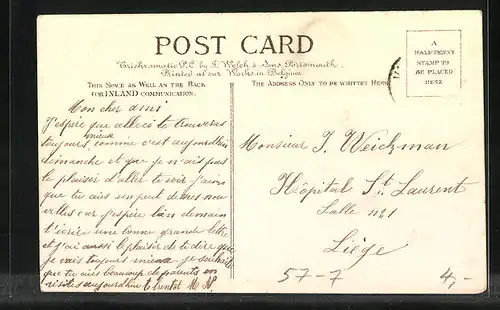 POST CARD
Trichromatic P.C. by J. Welch & Sons, Portsmouth,
Printed at our Works in Belgium
A
HALFPENNY
STAMP TO
BE PLACED
HERE
THIS SPACE AS WELL AS THE BACK
FOR INLAND COMMUNICATION.
THE ADDRESS ONLY TO BE WRITTEN HERE
Mon cher ami
J'espère que celleci te trouveras
toujours mieux comme c'est aujourdhui
dimanche et que je n'ais pas
le plaisir d'aller te voir j'aime
que tu ais un peut de mes nou
velles car j'espère bien demain
t'écrire une bonne grande lettre
et j'ai aussi le plaisir de te dire que
je vais toujours mieux je souhaite
que tu aies beaucoup de parents en
visites aujourdhui à bientot M N.
Monsieur J. Weichman
Hôpital St Laurent
Salle n=1
Liége
57-7
4,-